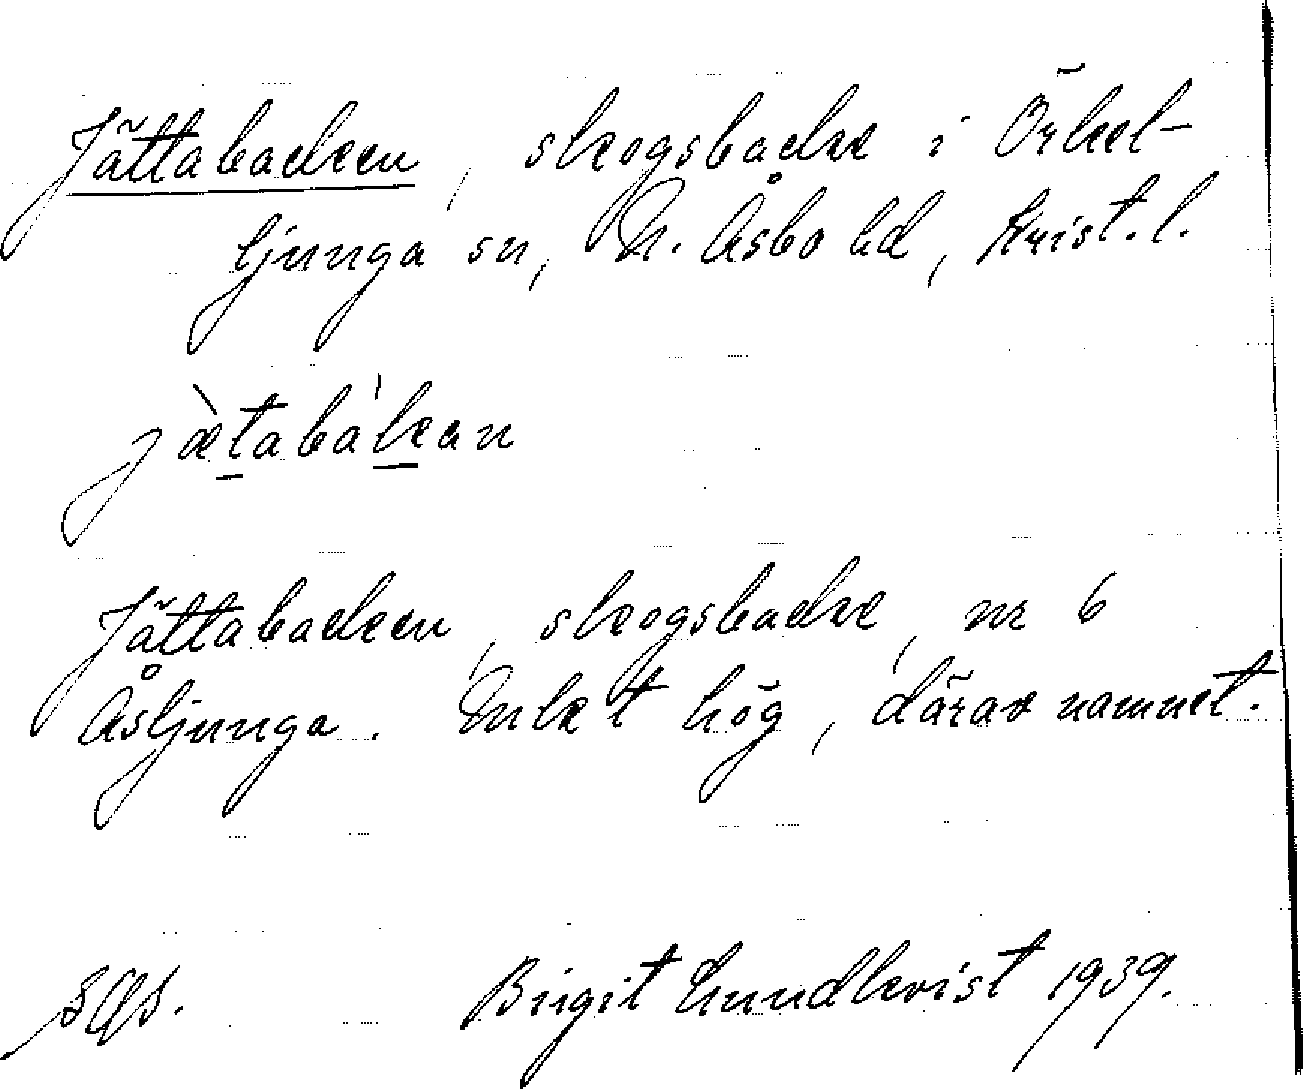 Jättabacken, skogsbacke i Örkel-
ljunga sn, N. Åsbo hd, Krist. l.
jætabákan
Jättabacken, skogsbacke, nr 6
Åsljunga. Mkt hög, därav namnet.
Birgit Lundkvist 1939.